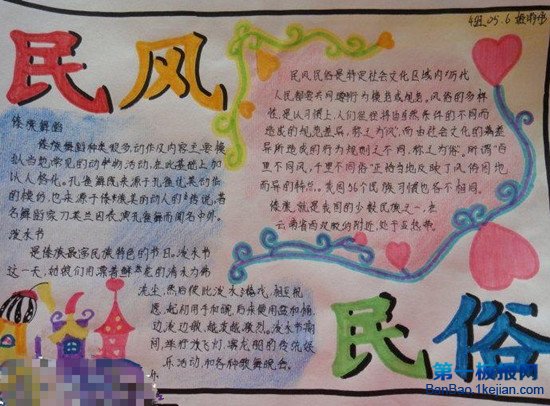 民风
傣族舞蹈
傣族舞蹈种类较多,动作及内容主要模
拟当地常见的动物的活动,在此基础上加
以人格化。孔雀舞既来源于孔雀优美动作
的模仿,也来源于傣族美丽动人的传说,著
名舞蹈家刀美兰因表演孔雀舞而闻名中外。
泼水节
是傣族最富民族特色的节日。泼水节
这一天,姑娘们用漂着鲜花的清水为佛
洗尘,然后彼此泼水嬉戏,相互祝
愿。起初用手和碗,后来使用盆和桶,
边泼边歌,越泼越激烈。泼水节期
间,举行放飞灯 赛龙船的传统娱
乐活动和各种歌舞晚会。
4组 05.6
民风民俗是特定社会文化区域内历代
人民都共同遵守的行为模式或规范。风俗的多样
性,是以习惯上人们往往将由自然条件的不同而
造成的规范差异,称之为“风”,而由社会文化的差异
所造成的行为规则之不同,称之为“俗”。所谓“百
里不同风,千里不同俗”正恰当地反映了风俗因地
而异的特点。我国56个民族习惯也各不相同。
傣族,就是我国的少数民族之一,在
云南省西双版纳附近,处于亚热带。
民俗
第一板报网
BanBao.1kejian.com